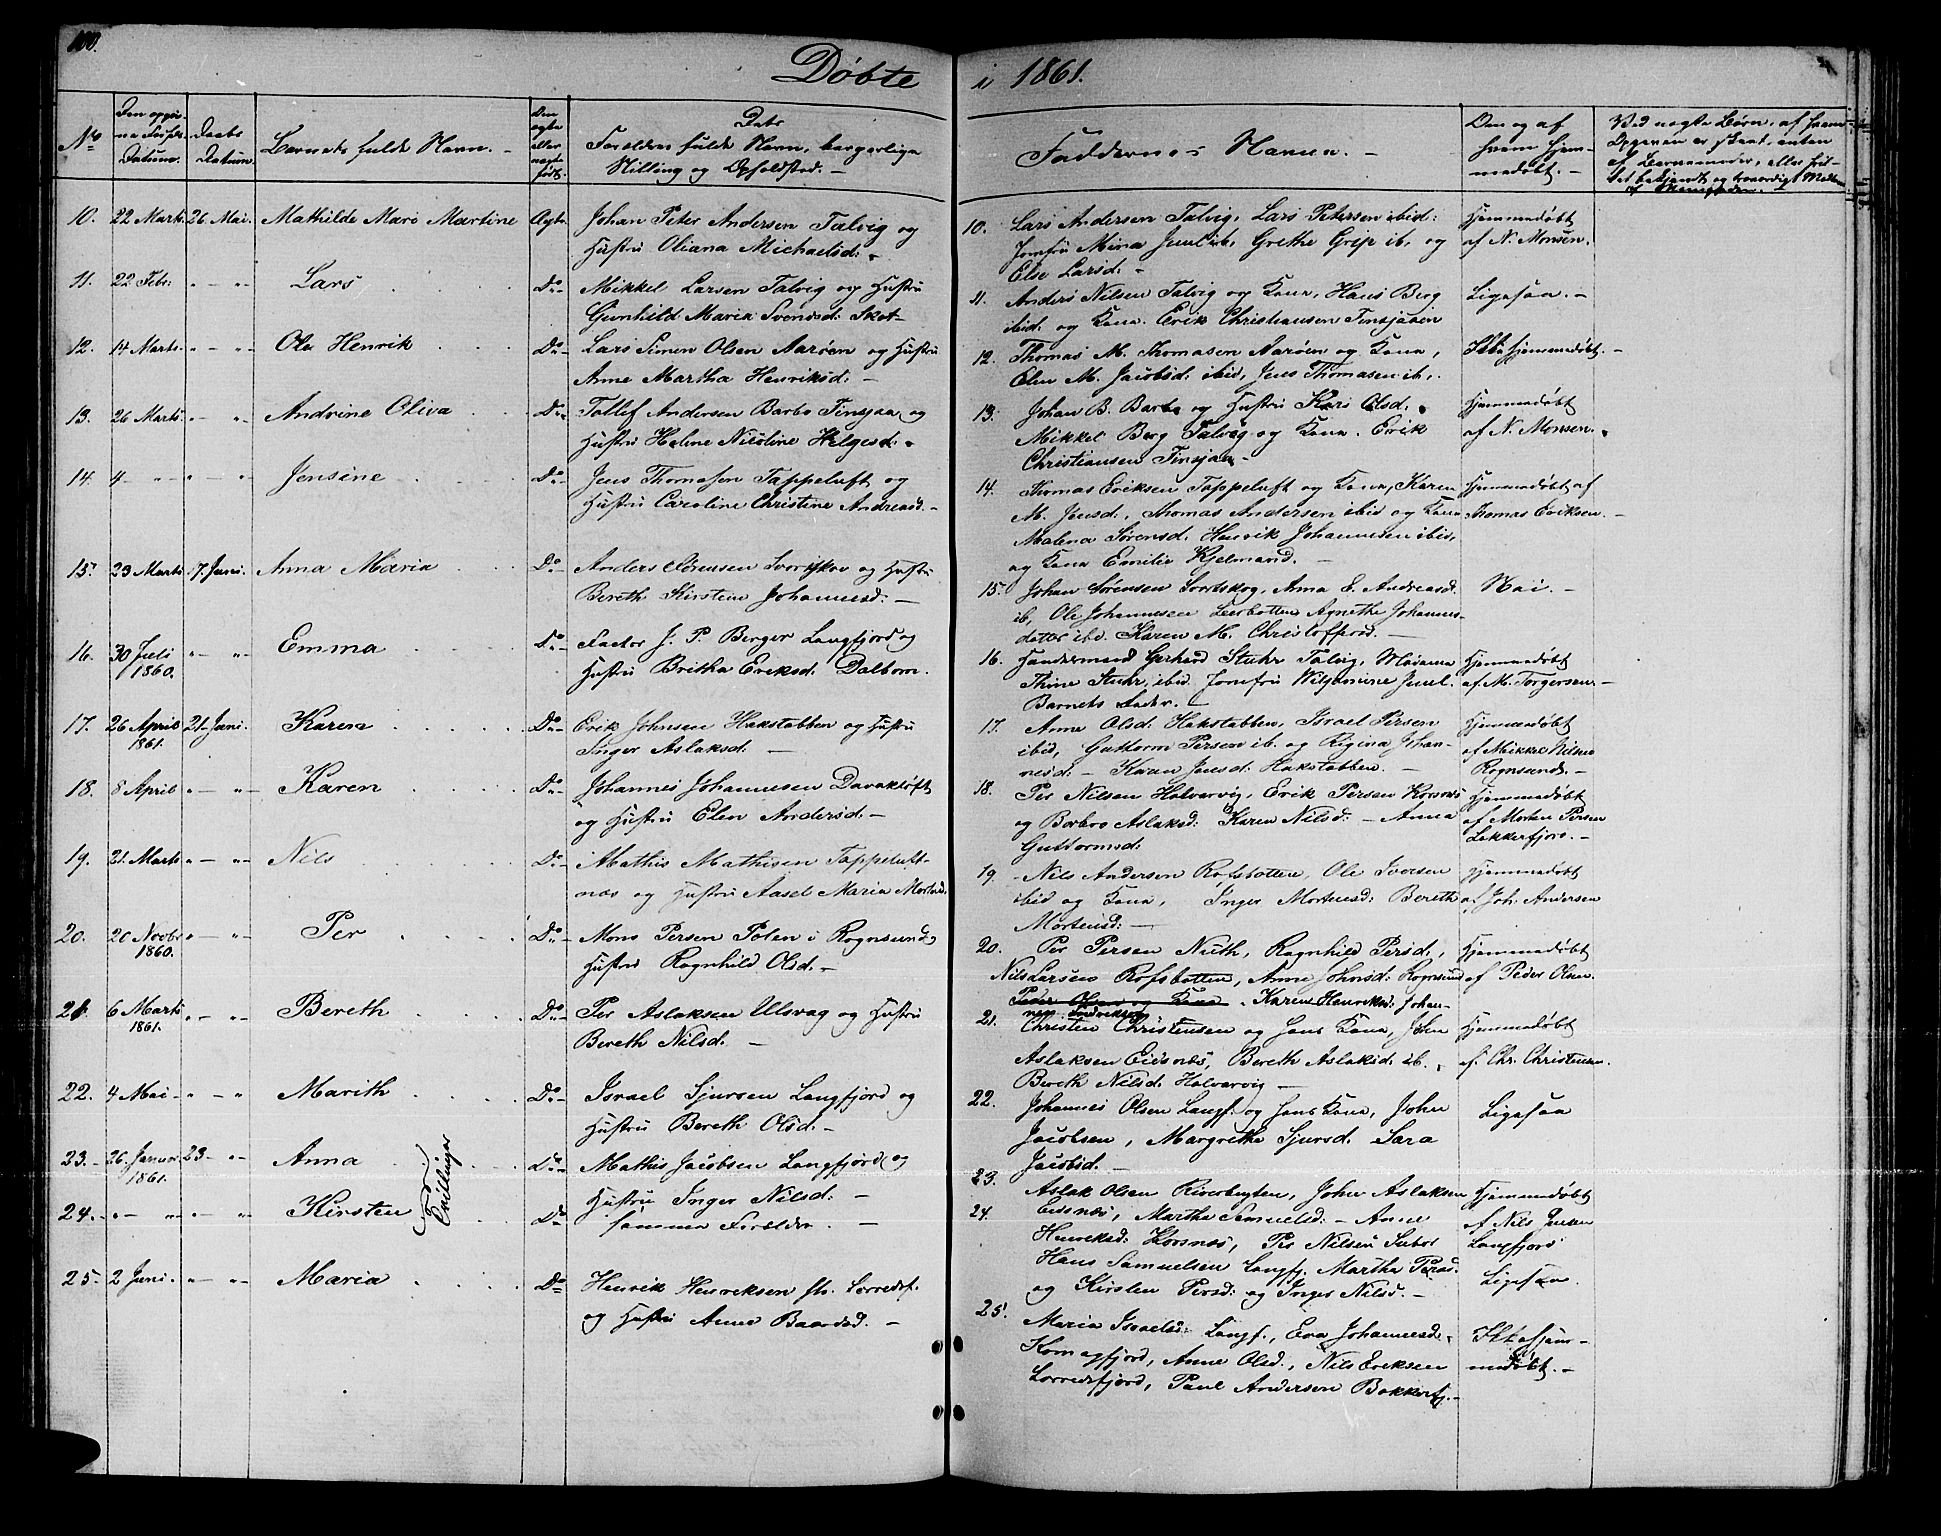 100.
Døbte i 1861.
No
Datum.
Daabs Datum.
Barnets fulde Navn. -
Den ægte eller uægte født.
Forældres fulde Navn, borgerlige
Stilling og Opholdsted. -
Faddernes Navne. -
Om og af
hvem hjem-
medøbt. -
Ved uægte Børn, af hvem
10. 22 Marts. 26 Mai. Mathilde Mare Martine Ægte Johan Peter Andersen Talvig og
Hustru Oliana Michaelsd:
11. 22 Febr: " - " - Lars Do - Mikkel Larsen Talvig og Hustru
Gunhild Maria Svendsd: Skot-
12. 14 Marts. " - " - Ole Henrik Do - Lars Simon Olsen Aarøen og Hustru
Anne Martha Henriksd: -
13. 26 Marts " - " Andrine Oliva Do Tollef Andersen Barbo Tinsjaa og
Hustru Heline Nicoline Helgesd:
14. 4 - " " - " Jensine Do - Jens Thomasen Tappeluft og
Hustru Caroline Christine Andreasd. -
15. 23 Marts. 17. Juni. Anna Maria Do - Anders Sørensen Svortskov og Hustru
Bereth Kirstine Johannesd: -
16. 30 Juli " - " - Emma Do - Factor J. P. Berger Langfjord og
1860. Hustru Britha Eriksd. Dalborn.
17. 26 April 21 Juni. Karen Do - Erik Johnsen Hakstabben og Hustru
1861. Inger Aslaksd. -
18. 8 April " - " - Karen Do - Johannes Johannesen Davakløft
og Hustru Elen Andersd. -
19. 21. Marts " - " - Nils Do - Mathis Mathisen Tappeluft-
næs og Hustru Aasel Maria Mortensd.
20. 20 Novbr " - " - Per Do - Mons Persen Polen i Rognsund
1860. Hustru Ragnhild Olsd. -
21. 6 Marts " - " - Bereth Do - Per Aslaksen Ulsvag og Hustru
1861. Bereth Nilsd. -
22. 4 Mai - " - " Marith Do - Israel Sjursen Langfjord og
Hustru Bereth Olsd. -
23. - 26. Januar. 23 - " - Anna Do - Mathis Jacobsen Langfjord og
1861. Hustru Inger Nilsd: -
24. - " - " " - " Kirsten Do Samme Forældre. -
Tvillinger
25 - 2 Juni. " - " - Maria Do Henrik Henriksen fh. Lerredsf.
og Hustru Anne Baardsd. -
10. Lars Andersen Talvig, Lars Petersen ibid: Hjemmedøbt
Jomfru Mina Juul ib, Grethe Grip ib, og af N. Monsen.
Else Larsd: -
11. Anders Nilsen Talvig og Kona, Hans Berg Ligesaa. -
ibid. og Kona. Erik Christiansen Tinsjaaen
12. Thomas M. Thomasen Aarøen og Kona, Ikke hjemmedøbt. -
Elen M. Jacobsd. ibid, Jens Thomasen ib.
13. Johan B. Barbo og Hustru Kari Olsd. Hjemmedøbt
Mikkel Berg Talvig og Kona. Erik af N. Monsen.
Christiansen Tinsjaa -
14. Thomas Eriksen Tappeluft og Kona, Karen Hjemmedøbt af
M. Jensd., Thomas Andersen ibid og Kona Thomas Eriksen. -
Malena Sørensd. Henrik Johannesen ibid,
og Kona Emilie Kjelmand. -
15. Johan Sørensen Svortskog, Anna E. Andreasd. Nai. -
ib, Ole Johannesen Leerbotten Agnethe Johannes-
datter ibd. Karen M. Christoffersd. -
16. Handelsmand Gerhard Stuhr Talvig, Madame Hjemmedøbt
Thine Stuhr, ibid Jomfru Wilhelmine Juul. af M. Torgersen. -
Barnets Fader. -
17. Anne Olsd. Hakstabben, Israel Persen Hjemmedøbt
ibid, Guttorm Persen ib. og Rigina Johan- af Mikkel Nilsen
nesd. - Karen Jensd: Hakstabben. - Rognsund. -
18. Per Nilsen Halvarvig, Erik Persen Korsnæs Hjemmedøbt
og Borbro Aslaksd: Karen Nilsd. - Anna af Morten Persen
Guttormsd: Lekkerfjord. -
19. Nils Andersen Rafsbotten, Ole Iversen Hjemmedøbt
ibid og Kona, Inger Mortensd: Bereth af Joh: Andersen
Mortensd: -
20. Per Persen Nuth, Ragnhild Persd., Hjemmedøbt
Nils Larsen Rafsbotten, Anne Johnsd: Rognsund af Peder Olsen.
Peder Olsen og Kona. Karen Henriksd: Johan-
nes Hendriksen
21. Christen Christensen og hans Kona, John Hjemmedøbt
Aslaksen Eidsnæs, Bereth Aslaksd. ib. af Chr. Christensen.
Bereth Nilsd. Halvarvig -
22. Johannes Olsen Langf. og hans Kona, John Ligesaa
Jacobsen, Margrethe Sjursd. Sara
Jacobsd. -
23. Aslak Olsen Riverbugten, John Aslaksen Hjemmedøbt
24. Eidsnæs, Martha Samuelsd: - Anne af Nils Jensen
Henriksd: Korsnæs, Per Nilsen Langfjord
Hans Samuelsen Langf. Martha Persd. Ligesaa.
og Kirsten Persd: og Inger Nilsd. -
25. Maria Israelsd: Langf., Eva Johannesd. Ikke hjem-
Komagfjord, Anne Olsd., Nils Eriksen medøbt. -
Lerredsfjord, Paul Andersen Bekkerfj. -